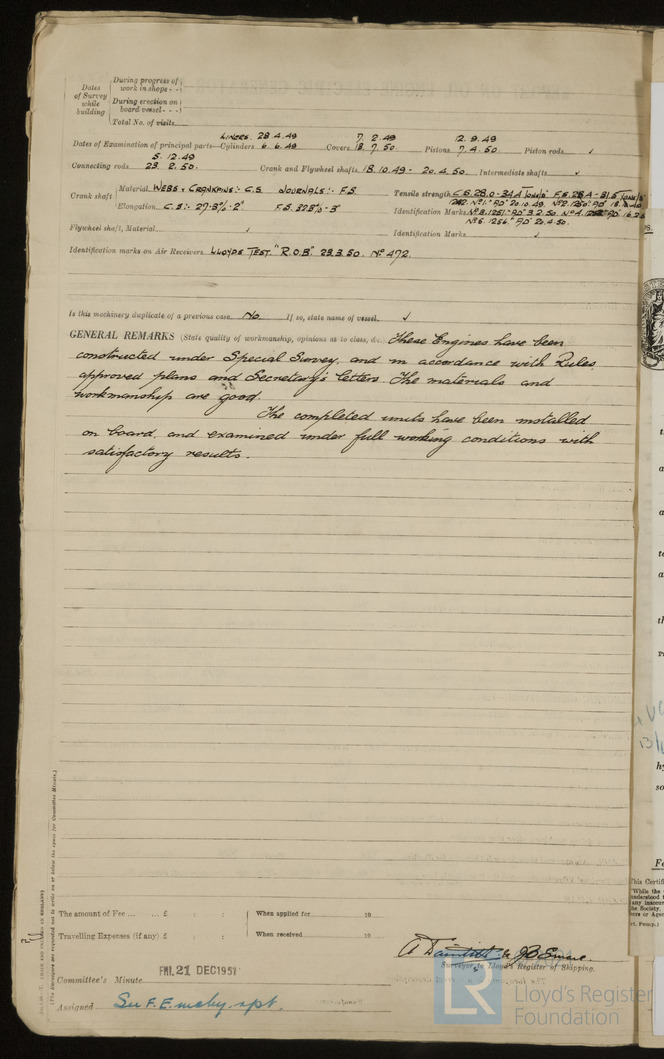 Dates of Survey while building
During progress of work in shops - -
During erection on board vessel - - -
Total No. of visits
LINERS. 28.4.49 7.2.49 12.9.49
Dates of Examination of principal parts—Cylinders 6.6.49 Covers 18.7.50. Pistons 7.4.50. Piston rods ✓
5.12.49
Connecting rods 23.2.50. Crank and Flywheel shafts 18.10.49 - 20.4.50. Intermediate shafts ✓
Crank shaft Material WEBS & CRANKPINS:- C.S. JOURNALS:- F.S. Tensile strength C.S. 28.0 - 34.4 TONS/□" F.S. 28.4 - 31.5 TONS/□"
Elongation C.S:- 27-31% - 2" F.S. 32½% - 3" Identification Marks
Nº5. 1256. AD 20.4.50.
Flywheel shaft, Material ✓ Identification Marks ✓
Identification marks on Air Receivers LLOYDS TEST. "R.O.B." 23.3.50. Nº 472.
Is this machinery duplicate of a previous case No If so, state name of vessel ✓
GENERAL REMARKS (State quality of workmanship, opinions as to class, &c. These Engines have been
constructed under Special Survey, and in accordance with Rules,
approved plans and Secretary's letters. The materials and
workmanship are good.
The completed units have been installed
on board, and examined under full working conditions with
satisfactory results.
(The Surveyors are requested not to write on or below the space for Committee Minute.)
The amount of Fee ... £ : : When applied for 19
Travelling Expenses (if any) £ : : When received 19
Surveyor to Lloyd's Register of Shipping.
Committee's Minute FRI. 21 DEC 1951
Assigned See F.E. mchy. rpt.
Lloyd's Register
Foundation
LR